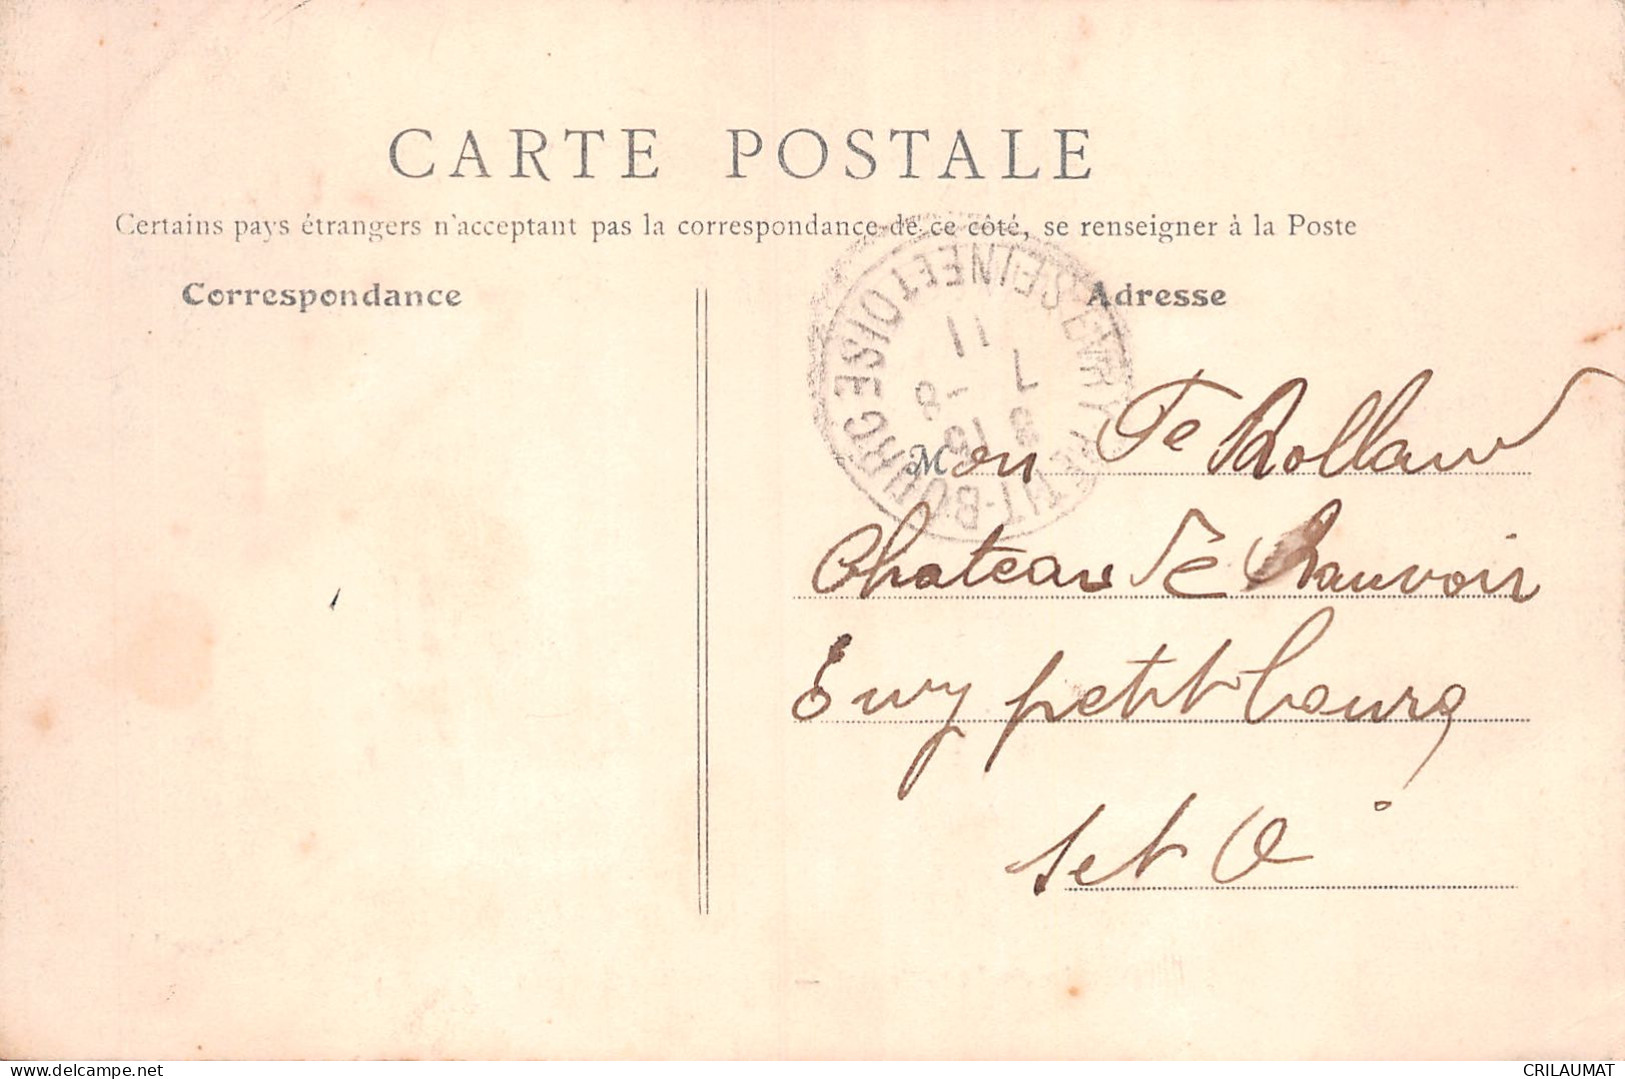 CARTE POSTALE
Certains pays étrangers n'acceptant pas la correspondance de ce côté, se renseigner à la Poste
Correspondance
Adresse
EVRY PETIT-BOURG
SEINE ET OISE
Mon de Rolland
Chateau de Beauvoir
Evry petit bourg
S et O
www.delcampe.net
CRILAUMAT